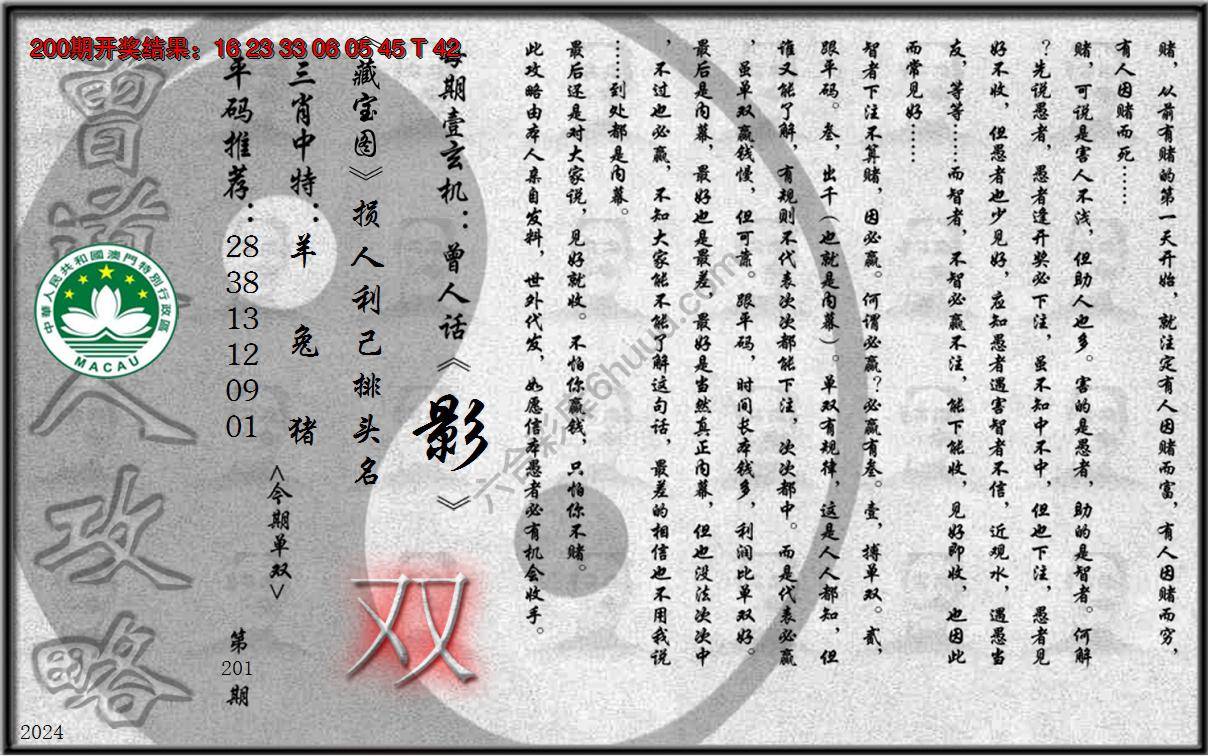 200期开奖结果：16 23 33 06 05 45 T 42
赌，从前有赌的第一天开始，就注定有人因赌而富，有人因赌而穷，
有人因赌而死……
赌，可说是害人不浅，但助人也多。害的是愚者，助的是智者。何解
？先说愚者，愚者逢开奖必下注，虽不知中不中，但也下注，愚者见
好不收，但愚者也少见好，应知愚者遇害智者不信，近观水，遇愚当
友，等等……而智者，不智必赢不注，能下能收，见好即收，也因此
而常见好……
智者下注不算赌，因必赢。何谓必赢？必赢有叁。壹，搏单双。贰，
跟平码。叁，出千（也就是内幕）。单双有规律，这是人人都知，但
谁又能了解，有规则不代表次次都能下注，次次都中。而是代表必赢
，虽单双赢钱慢，但可靠。跟平码，时间长本钱多，利润比单双好。
最后是内幕，最好也是最差，最好是当然真正内幕，但也没法次次中
，不过也必赢，不知大家能不能了解这句话，最差的相信也不用我说
……到处都是内幕。
最后还是对大家说，见好就收。不怕你赢钱，只怕你不赌。
此攻略由本人亲自发料，世外代发，如愿信本愚者必有机会收手。
每期壹玄机：曾人话《影》
《藏宝图》损人利己排头名
三肖中特：羊 兔 猪
平码推荐：28 38 13 12 09 01
<今期单双>
双
第201期
曾道人攻略
中華人民共和國澳門特別行政區
MACAU
六合彩库6huuu.com
2024